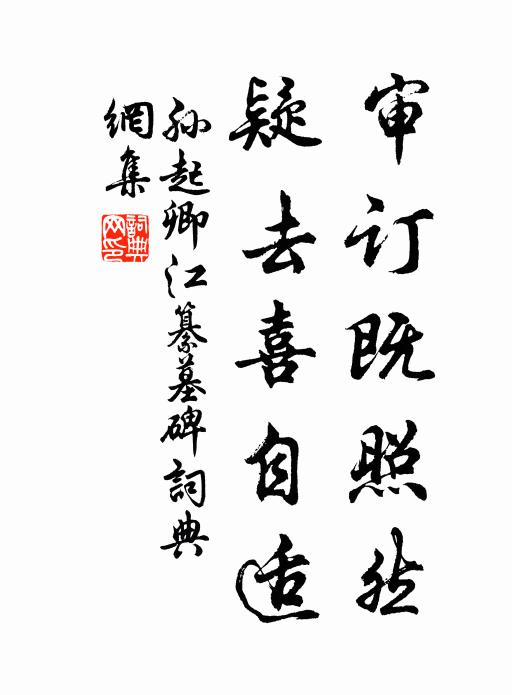 审订既照然
疑去喜自适
孙起卿江纂墓碑詞典
網集
詞典网印